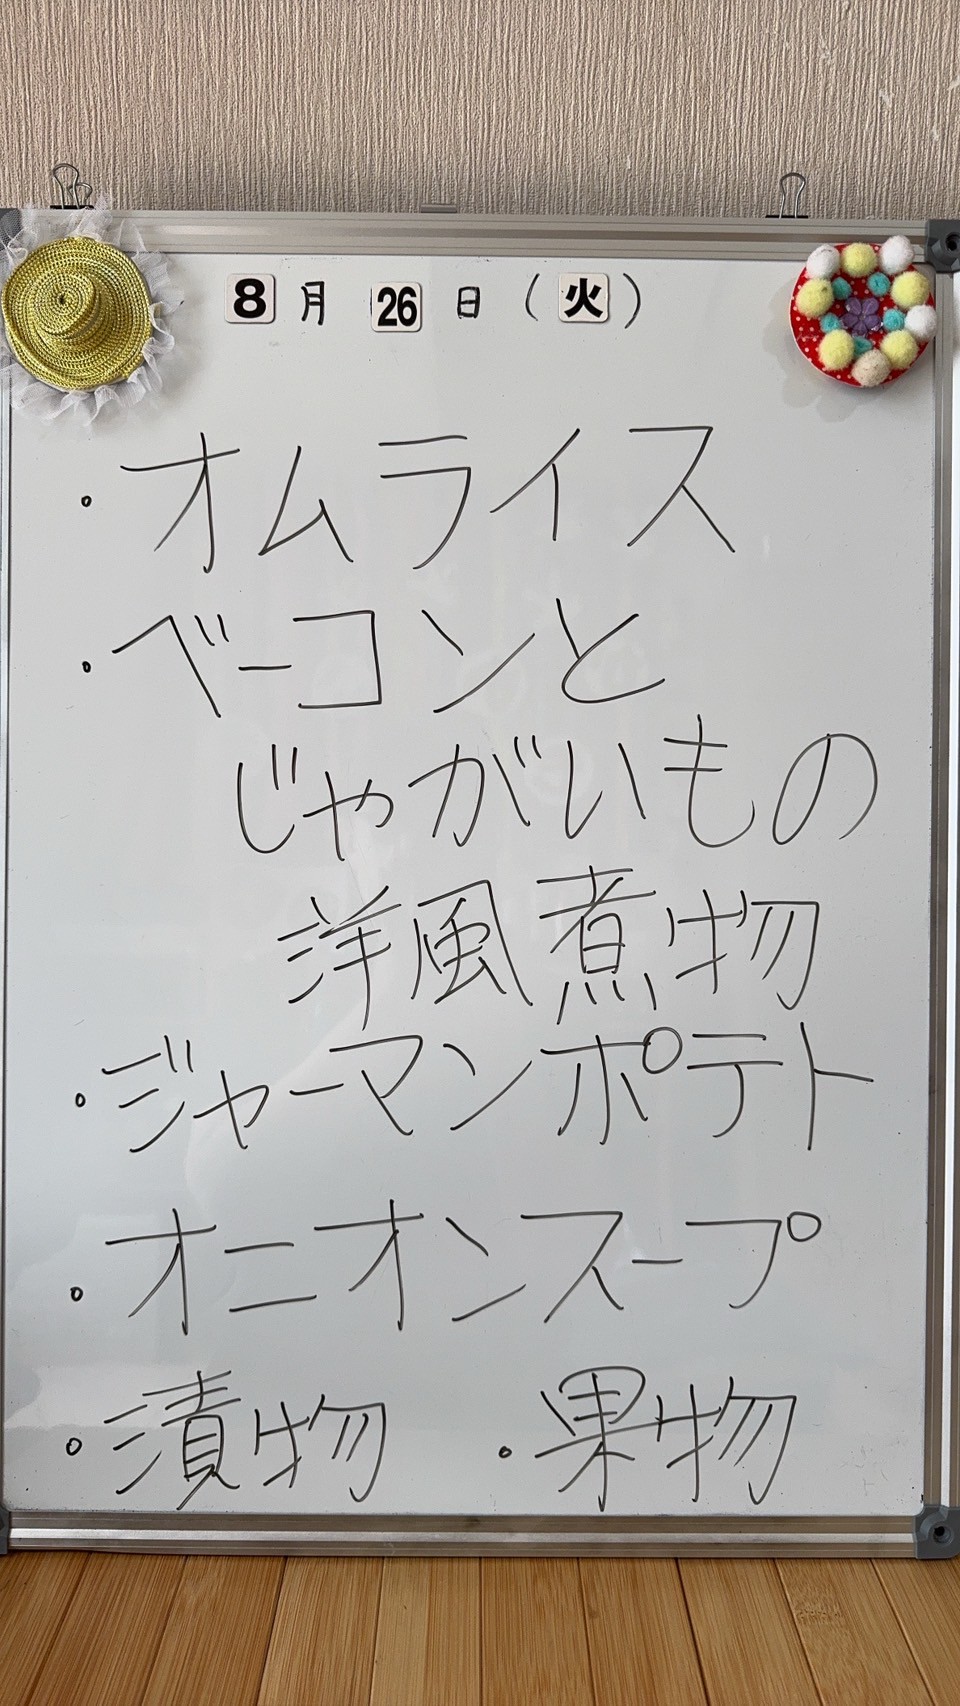 8月 26日(火)
・オムライス
・ベーコンと
じゃがいもの
洋風煮物
・ジャーマンポテト
・オニオンスープ
・漬物 ・果物